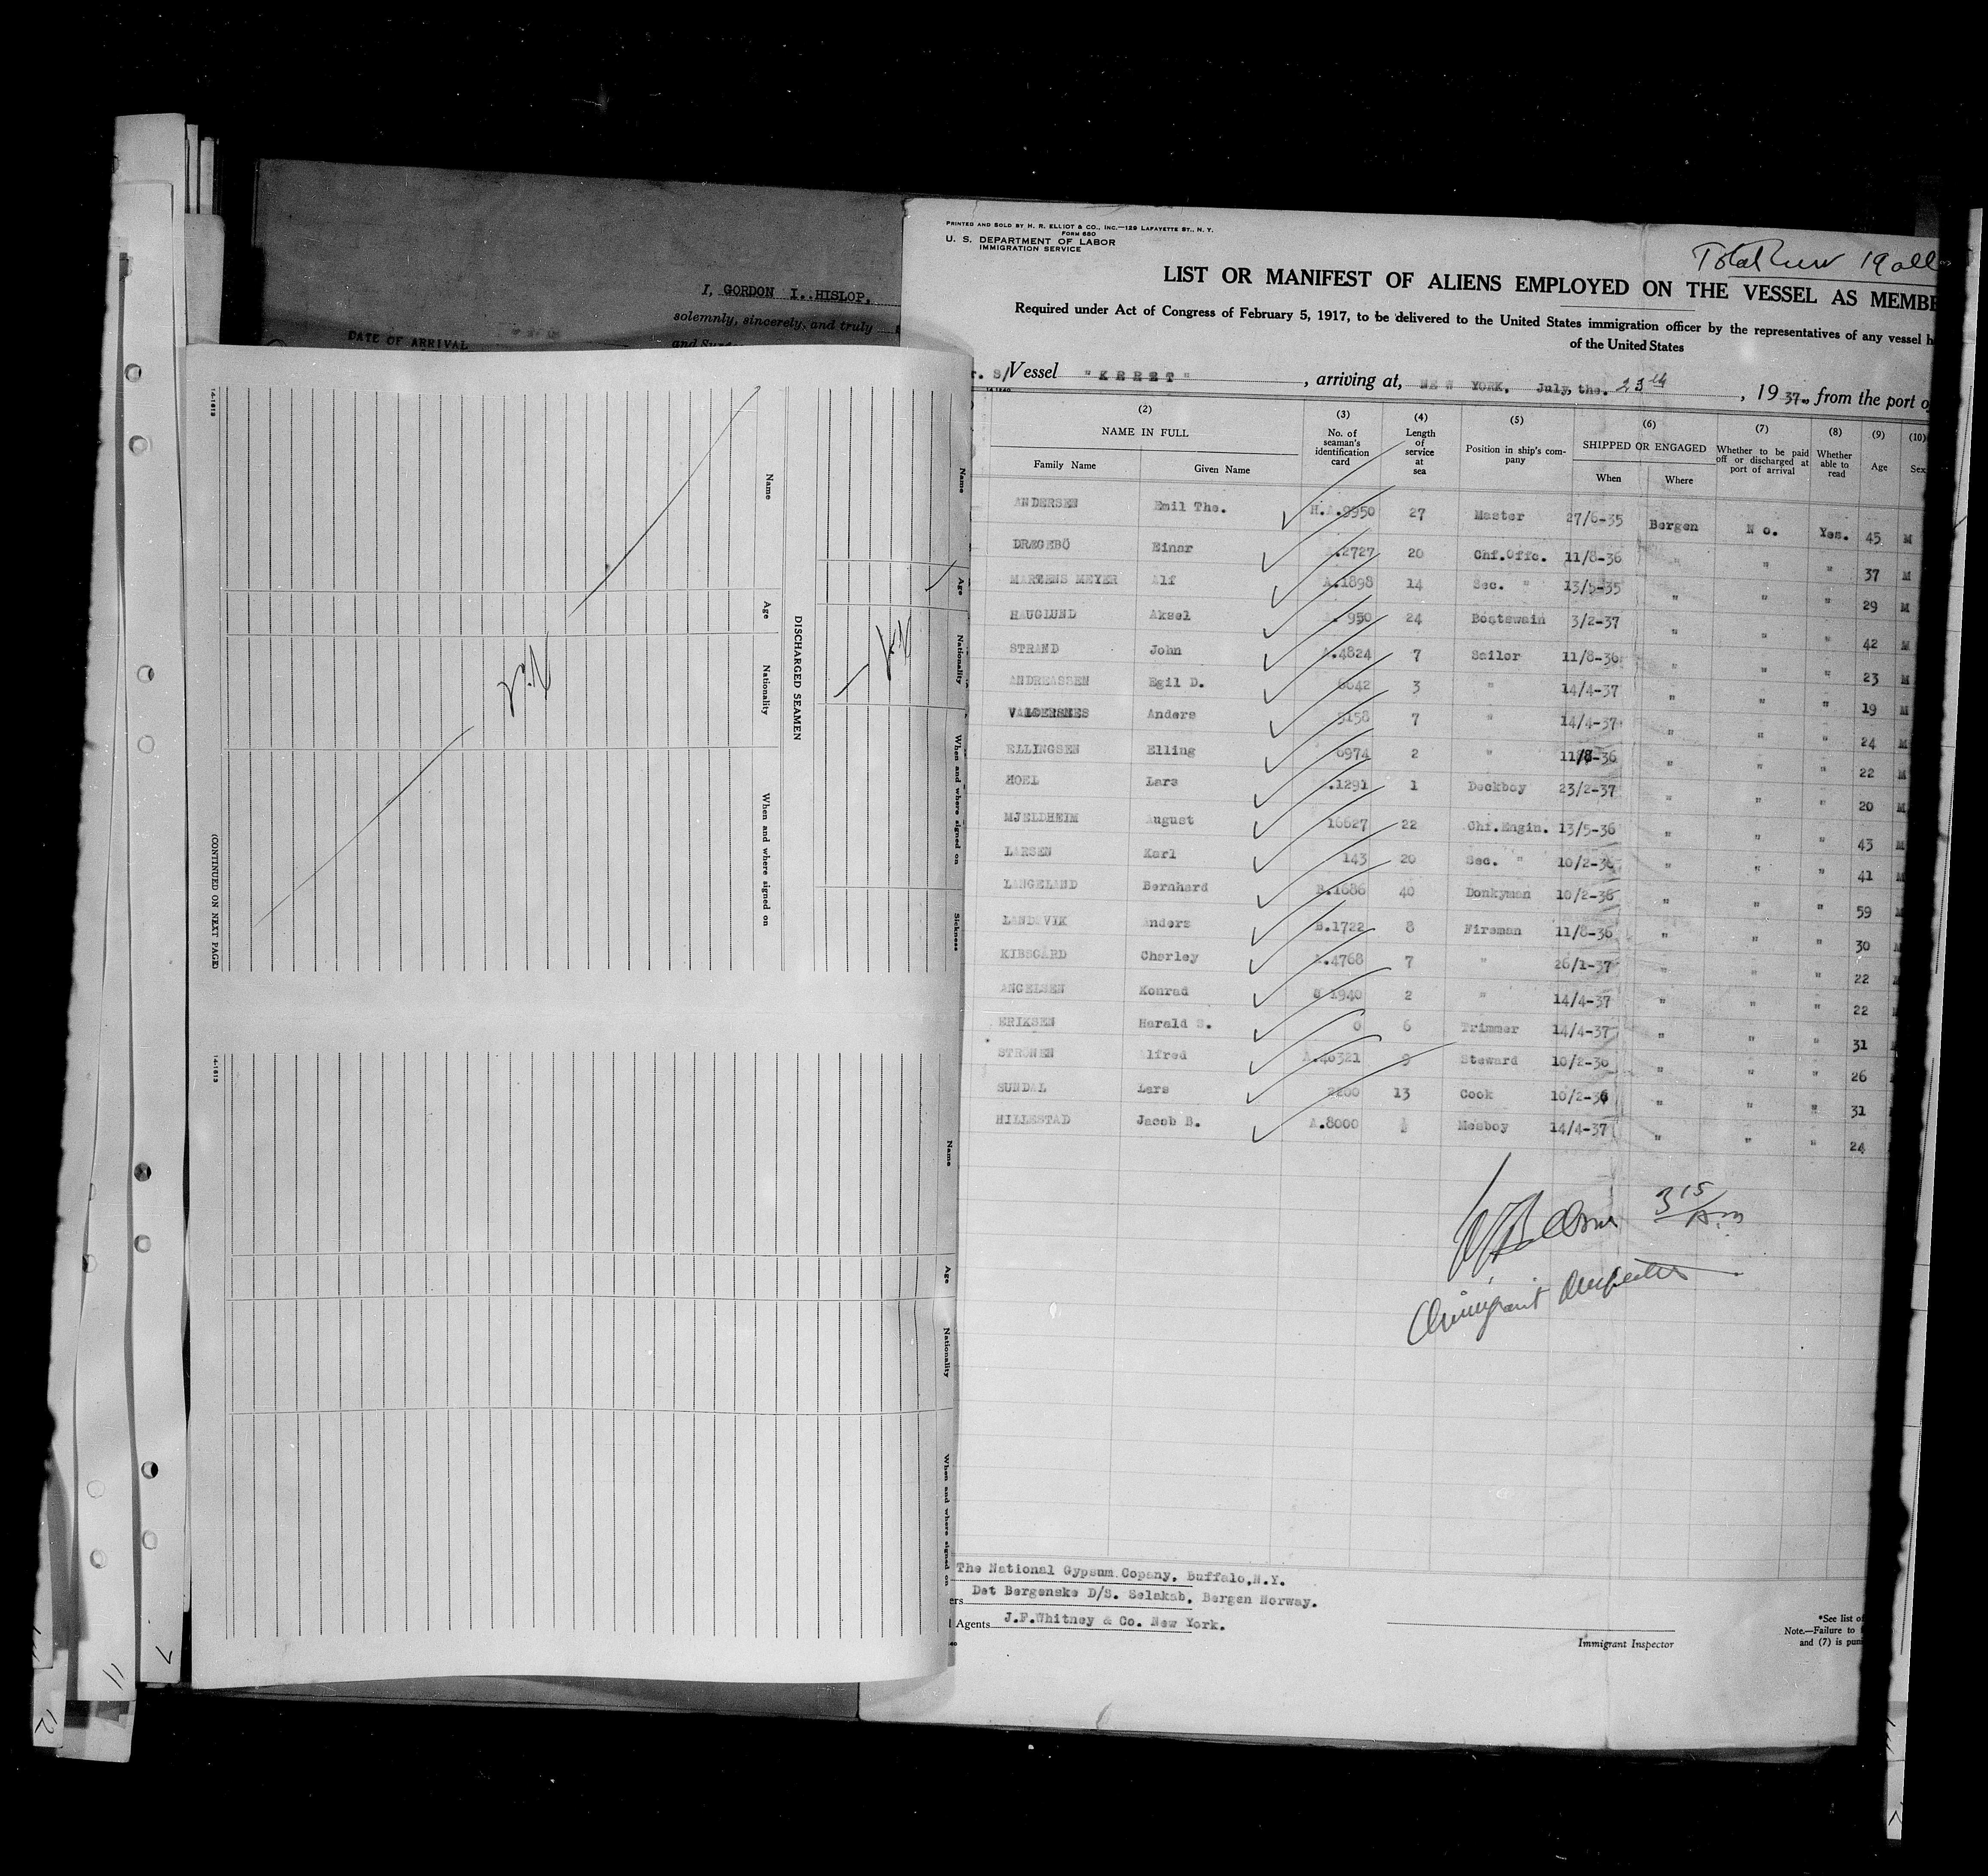 I, GORDON I. HISLOP,
solemnly, sincerely, and truly
and
DATE OF ARRIVAL
14-1613
Name
Age
Nationality
When and where signed on
Sickness
DISCHARGED SEAMEN
Name
Age
Nationality
When and where signed on
(CONTINUED ON NEXT PAGE)
Nil
Nil
14-1613
Name
Age
Nationality
When and where signed on
PRINTED AND SOLD BY H. R. ELLIOT & CO., INC.—129 LAFAYETTE ST., N. Y.
FORM 680
U. S. DEPARTMENT OF LABOR
IMMIGRATION SERVICE
Total Crew 19 all
LIST OR MANIFEST OF ALIENS EMPLOYED ON THE VESSEL AS MEMBE
Required under Act of Congress of February 5, 1917, to be delivered to the United States immigration officer by the representatives of any vessel h
of the United States
r. s/ Vessel "KERET", arriving at, NEW YORK. July, the. 23th, 1937. from the port o
(2) (3) (4) (5) (6) (7) (8) (9) (10)
NAME IN FULL No. of seaman's identification card Length of service at sea Position in ship's company SHIPPED OR ENGAGED Whether to be paid off or discharged at port of arrival Whether able to read Age Sex
Family Name Given Name When Where
ANDERSEN Emil The. H.A.9950 27 Master 27/6-35 Bergen No. Yes. 45 M
DRÆGEBÖ Einar A.2727 20 Chf.Offc. 11/8-36 " " " 37 M
MARTENS MEYER Alf A.1898 14 Sec. " 13/5-35 " " " 29 M
HAUGLUND Aksel 950 24 Boatswain 3/2-37 " " " 42 M
STRAND John A.4824 7 Sailor 11/8-36 " " " 23 M
ANDREASSEN Egil D. 6642 3 " 14/4-37 " " " 19 M
VALDERSNES Anders 5158 7 " 14/4-37 " " " 24 M
ELLINGSEN Elling 6974 2 " 11/8-36 " " " 22 M
HOEL Lars .1291 1 Deckboy 23/2-37 " " " 20 M
MJELDHEIM August 16627 22 Chf.Engin. 13/5-36 " " " 43 M
LARSEN Karl 143 20 Sec. " 10/2-36 " " " 41 M
LANGELAND Bernhard B.1686 40 Donkyman 10/2-36 " " " 59 M
LANDSVIK Anders B.1722 8 Fireman 11/8-36 " " " 30 M
KIBSGÅRD Charley A.4768 7 " 26/1-37 " " " 22
ANGELSEN Konrad 1940 2 " 14/4-37 " " " 22
ERIKSEN Harald S. 0 6 Trimmer 14/4-37 " " " 31
STRØNEN Alfred A.40321 9 Steward 10/2-36 " " " 26
SUNDAL Lars 2200 13 Cook 10/2-36 " " " 31
HILLESTAD Jacob B. A.8000 ½ Mesboy 14/4-37 " " " 24
3 15 A.m
Immigrant Inspector
The National Gypsum Copany. Buffalo,N.Y.
ers Det Bergenske D/S. Selskab, Bergen Norway.
l Agents J.F.Whitney & Co. New York.
Immigrant Inspector
*See list of
Note.—Failure to
and (7) is pun